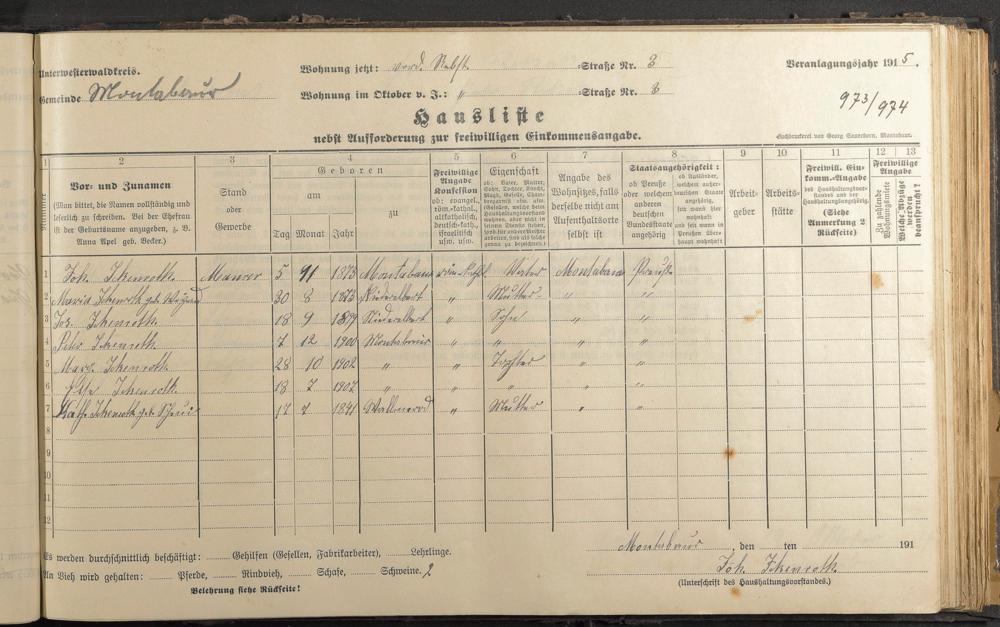 Unterwesterwaldkreis.
Gemeinde Montabaur
Wohnung jetzt: vord. Rebst. =Straße Nr. 3
Wohnung im Oktober v. J.: " =Straße Nr. 3
Veranlagungsjahr 1915.
973/974
Hausliste
nebst Aufforderung zur freiwilligen Einkommensangabe.
Buchdruckerei von Georg Sauerborn, Montabaur.
1 2 3 4 5 6 7 8 9 10 11 12 13
Nummer
Vor- und Zunamen
(Man bittet, die Namen vollständig und
leserlich zu schreiben. Bei der Ehefrau
ist der Geburtsname anzugeben, z. B.
Anna Apel geb. Becker.)
Stand
oder
Gewerbe
Geboren
am
zu
Tag Monat Jahr
Freiwillige
Angabe
Konfession
ob: evangel.,
röm.-kathol.,
altkatholisch,
deutsch-kath.,
israelitisch
usw. usw.
Eigenschaft
ob: Vater, Mutter,
Sohn, Tochter, Knecht,
Magd, Geselle,
Angabe des
Wohnsitzes, falls
derselbe nicht am
Aufenthaltsorte
selbst ist
Staatsangehörigkeit:
ob Preuße
oder welchem
anderen
deutschen
Bundesstaate
angehörig
ob Ausländer,
welchem außer-
deutschen Staate
angehörig,
seit wann hier
wohnhaft
und seit wann in
Preußen über-
haupt wohnhaft
Arbeit-
geber
Arbeits-
stätte
Freiwill. Ein-
komm.-Angabe
des Haushaltungsvor-
standes und der
Haushaltungsangehörig.
(Siehe
Anmerkung 2
Rückseite)
Freiwillige
Angabe
Zu zahlende
Wohnungsmiete
Welche Abzüge
werden
beansprucht?
1 Joh. Ickenroth Maurer 5 1873 Montabaur röm.-kathl. Vater Montabaur Preuße
2 Maria Ickenroth geb. 30 8 1873 Niederelbert " Mutter " "
3 Jos. Ickenroth 18 9 1899 Niederelbert " Sohn " "
4 Peter Ickenroth 7 12 1900 Montabaur " " " "
5 Marg. Ickenroth 28 10 1902 " " Tochter " "
6 Ickenroth 18 7 1907 " " " " "
7 Kath. Ickenroth geb. 17 7 1841 Wallmerod " Mutter " "
8
9
10
11
12
Es werden durchschnittlich beschäftigt: Gehilfen (Gesellen, Fabrikarbeiter), Lehrlinge.
An Vieh wird gehalten: Pferde, Rindvieh, Schafe, Schweine. 2
Belehrung siehe Rückseite!
Montabaur, den ten 191
Joh. Ickenroth
(Unterschrift des Haushaltungsvorstandes.)